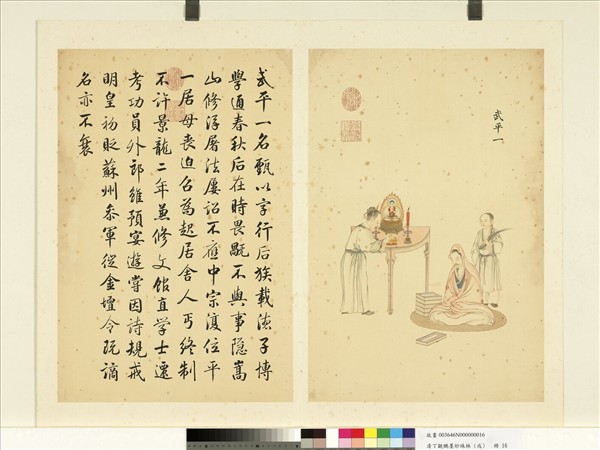 武平一
武平一名甄以字行后族載德子博
學通春秋后在時畏禍不與事隱嵩
山修浮屠法屢詔不應中宗復位平
一居母喪迫召為起居舍人丐終制
不許景龍二年兼修文館直學士遷
考功員外郎雖預宴遊嘗因詩規戒
明皇初貶蘇州參軍從金壇令既謫
名亦不衰
故畫 003646N000000016
清丁觀鵬墨妙珠林（戌） 冊 16